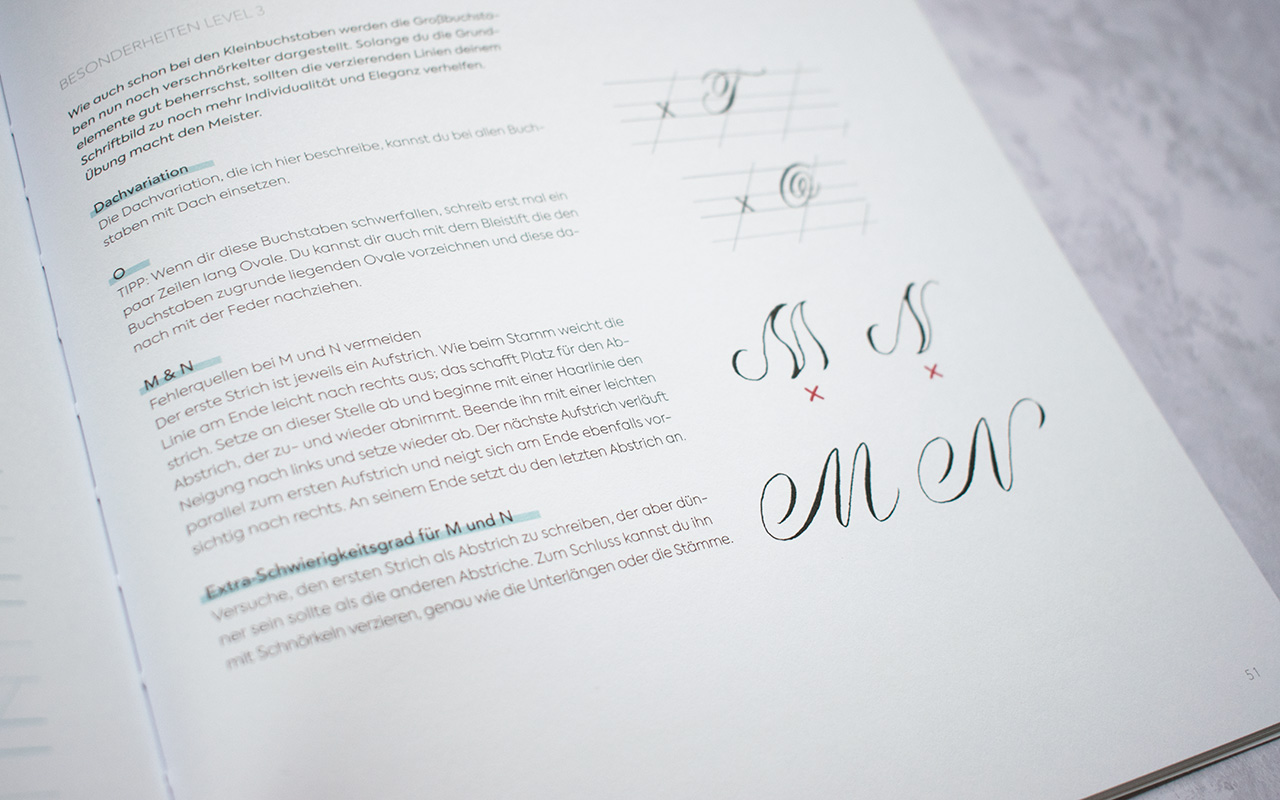 BESONDERHEITEN LEVEL 3
Wie auch schon bei den Kleinbuchstaben werden die Großbuchsta-
ben nun noch verschnörkelter dargestellt. Solange du die Grund-
elemente gut beherrschst, sollten die verzierenden Linien deinem
Schriftbild zu noch mehr Individualität und Eleganz verhelfen.
Übung macht den Meister.
Dachvariation
Die Dachvariation, die ich hier beschreibe, kannst du bei allen Buch-
staben mit Dach einsetzen.
x T
O
TIPP: Wenn dir diese Buchstaben schwerfallen, schreib erst mal ein
paar Zeilen lang Ovale. Du kannst dir auch mit dem Bleistift die den
Buchstaben zugrunde liegenden Ovale vorzeichnen und diese da-
nach mit der Feder nachziehen.
x O
M & N
Fehlerquellen bei M und N vermeiden
Der erste Strich ist jeweils ein Aufstrich. Wie beim Stamm weicht die
Linie am Ende leicht nach rechts aus; das schafft Platz für den Ab-
strich. Setze an dieser Stelle ab und beginne mit einer Haarlinie den
Abstrich, der zu- und wieder abnimmt. Beende ihn mit einer leichten
Neigung nach links und setze wieder ab. Der nächste Aufstrich verläuft
parallel zum ersten Aufstrich und neigt sich am Ende ebenfalls vor-
sichtig nach rechts. An seinem Ende setzt du den letzten Abstrich an.
M N
x x
M N
Extra-Schwierigkeitsgrad für M und N
Versuche, den ersten Strich als Abstrich zu schreiben, der aber dün-
ner sein sollte als die anderen Abstriche. Zum Schluss kannst du ihn
mit Schnörkeln verzieren, genau wie die Unterlängen oder die Stämme.
51